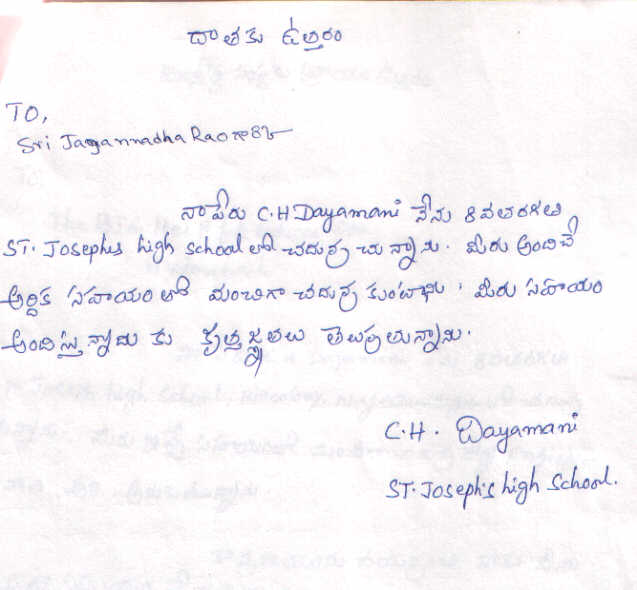 దాతకు ఉత్తరం
TO,
Sri Jagannadha Rao గారికి
నాపేరు C.H Dayamani నేను 8వతరగతి
ST. Joseph's high school లో చదువు చున్నాను. మీరు అందిచే
ఆర్థిక సహాయం లో మంచిగా చదువు కుంటాను. మీరు సహాయం
అందిస్తున్నాదు కు కృతజ్ఞతలు తెలుపుతున్నాను.
C.H. Dayamani
ST. Joseph's high School.